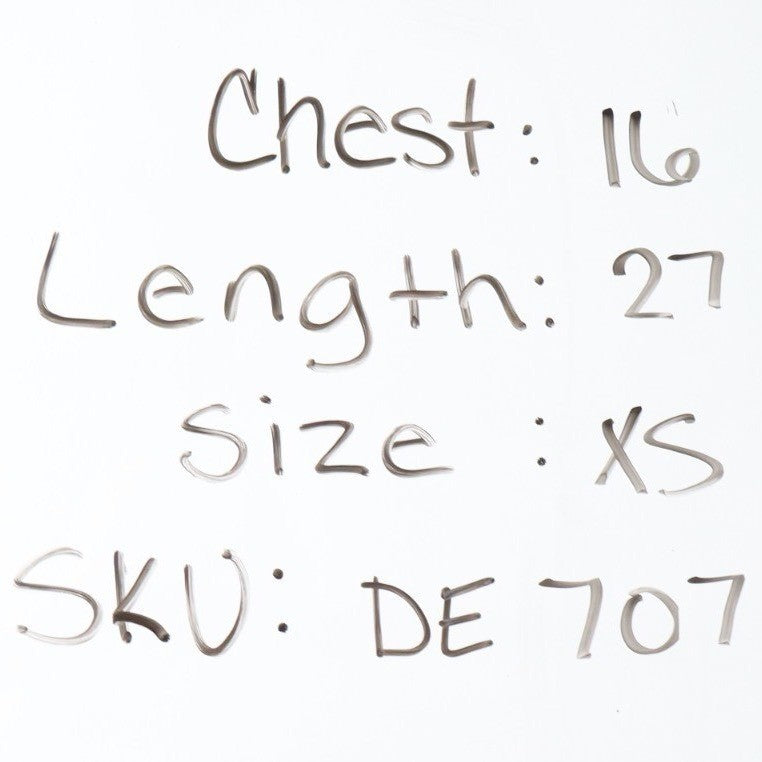 Chest: 16
Length: 27
Size : XS
SKU: DE 707